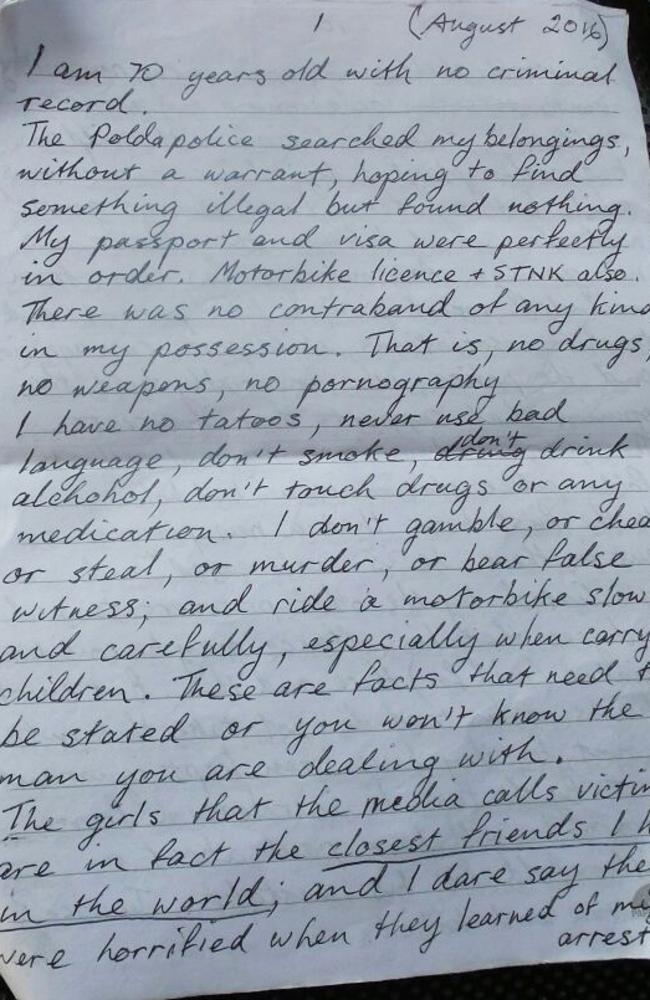 1 (August 2016)
I am 70 years old with no criminal
record.
The Polda police searched my belongings,
without a warrant, hoping to find
something illegal but found nothing.
My passport and visa were perfectly
in order. Motorbike licence + STNK also.
There was no contraband of any kind
in my possession. That is, no drugs,
no weapons, no pornography
I have no tatoos, never use bad
language, don't smoke, don't drink
alchohol, don't touch drugs or any
medication. I don't gamble, or chea
or steal, or murder, or bear false
witness; and ride a motorbike slow
and carefully, especially when carry
children. These are facts that need t
be stated or you won't know the
man you are dealing with.
The girls that the media calls victim
are in fact the closest friends I h
in the world; and I dare say the
were horrified when they learned of my
arrest